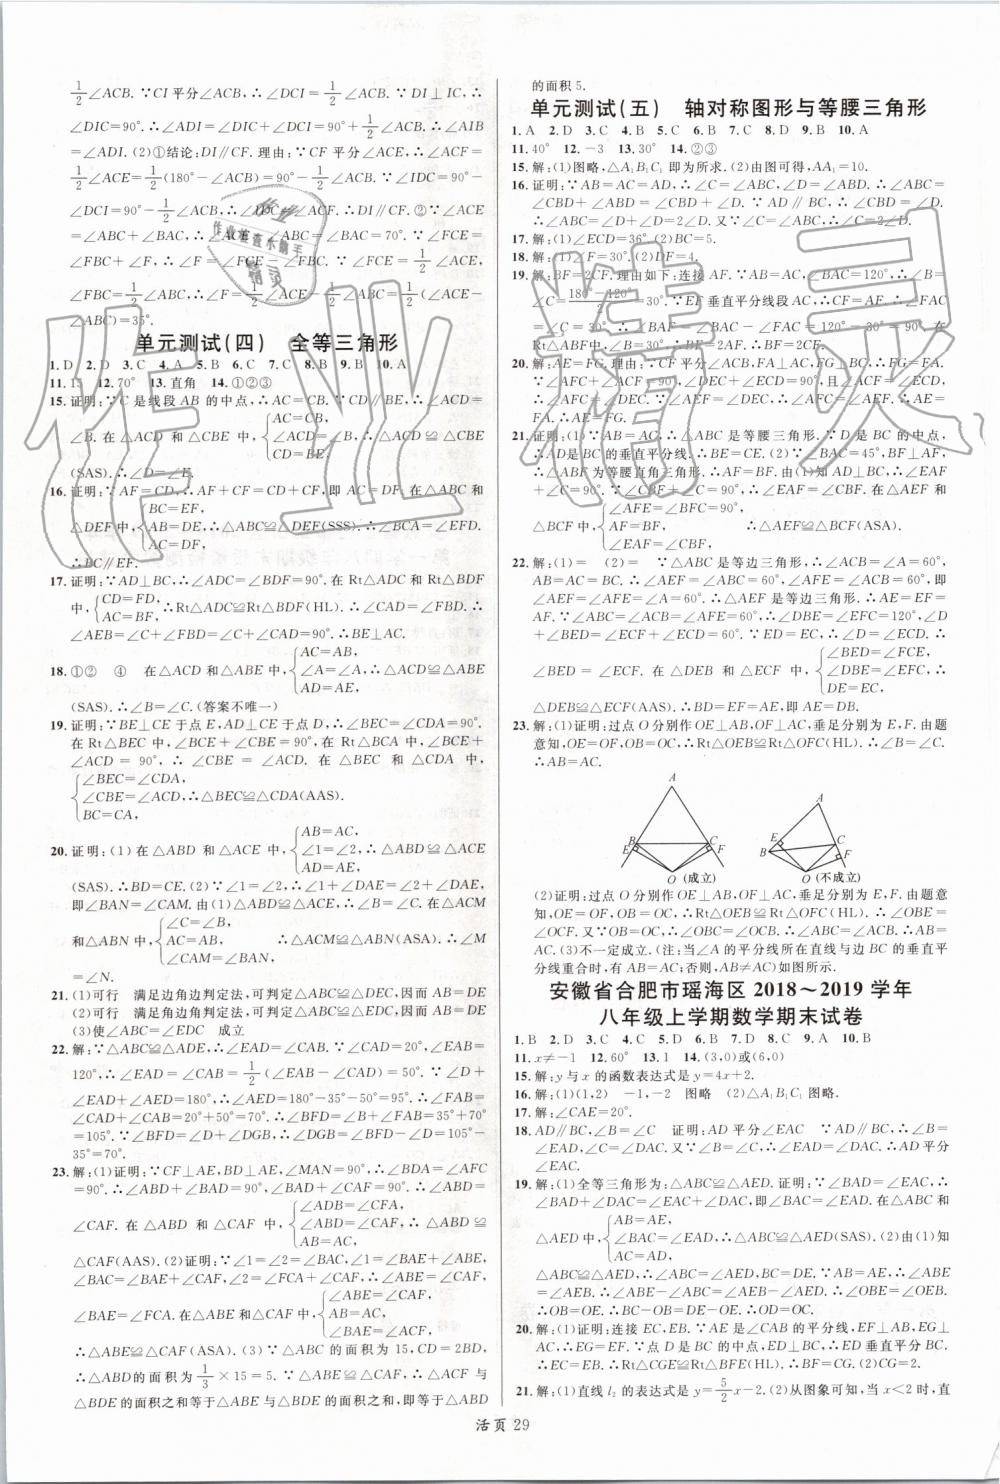 $\frac{1}{2}$∠ACB. ∵CI平分∠ACB, ∴∠DCI=$\frac{1}{2}$∠ACB. ∵DI⊥IC, ∴
∠DIC=90°. ∴∠ADI=∠DIC+∠DCI=90°+$\frac{1}{2}$∠ACB. ∴∠AIB
=∠ADI. (2)①结论:DI∥CF. 理由:∵CF平分∠ACE, ∴∠ACF=
$\frac{1}{2}$∠ACE=$\frac{1}{2}$(180°-∠ACB)=90°-$\frac{1}{2}$∠ACB. ∵∠IDC=90°-
∠DCI=90°-$\frac{1}{2}$∠ACB, ∴∠IDC=∠ACF. ∴DI∥CF. ②∵∠ACE
=∠ABC+∠BAC, ∴∠ACE-∠ABC=∠BAC=70°. ∵∠FCE=
∠FBC+∠F, ∴∠F=∠FCE-∠FBC. ∵∠FCE=$\frac{1}{2}$∠ACE,
∠FBC=$\frac{1}{2}$∠ABC, ∴∠F=$\frac{1}{2}$∠ACE-$\frac{1}{2}$∠ABC=$\frac{1}{2}$(∠ACE-
∠ABC)=35°.
单元测试(四) 全等三角形
1. D 2. D 3. C 4. A 5. B 6. C 7. C 8. B 9. B 10. A
11. 15 12. 70° 13. 直角 14. ①②③
15. 证明:∵C是线段AB的中点, ∴AC=CB. ∵CD∥BE, ∴∠ACD=
AC=CB,
∠B. 在△ACD 和 △CBE 中, ∠ACD=∠B, ∴△ACD≌△CBE
CD=BE.
(SAS). ∴∠D=∠E.
16. 证明:∵AF=CD, ∴AF+CF=CD+CF, 即AC=DF. 在△ABC和
BC=EF,
△DEF中, AB=DE, ∴△ABC≌△DEF(SSS). ∴∠BCA=∠EFD.
AC=DF,
∴BC∥EF.
17. 证明:∵AD⊥BC, ∴∠ADC=∠BDF=90°. 在Rt△ADC和Rt△BDF
中, CD=FD, AC=BF, ∴Rt△ADC≌Rt△BDF(HL). ∴∠C=∠BFD. ∴
∠AEB=∠C+∠FBD=∠C+∠CAD=90°. ∴BE⊥AC.
AC=AB,
18. ①② ④ 在△ACD和△ABE中, ∠A=∠A, ∴△ACD≌△ABE
AD=AE,
(SAS). ∴∠B=∠C. (答案不唯一)
19. 证明:∵BE⊥CE于点E,AD⊥CE于点D, ∴∠BEC=∠CDA=90°.
在Rt△BEC中, ∠BCE+∠CBE=90°, 在Rt△BCA中, ∠BCE+
∠ACD=90°, ∴∠CBE=∠ACD. 在△BEC和△CDA中,
∠BEC=∠CDA,
∠CBE=∠ACD, ∴△BEC≌△CDA(AAS).
BC=CA,
AB=AC,
20. 证明:(1)在△ABD和△ACE中, ∠1=∠2, ∴△ABD≌△ACE
AD=AE,
(SAS). ∴BD=CE. (2)∵∠1=∠2, ∴∠1+∠DAE=∠2+∠DAE,
即∠BAN=∠CAM. 由(1)△ABD≌△ACE, ∴∠B=∠C. 在△ACM
∠C=∠B,
和△ABN中, AC=AB, ∴△ACM≌△ABN(ASA). ∴∠M
∠CAM=∠BAN,
=∠N.
21. (1)可行 满足边角边判定法,可判定△ABC≌△DEC,因而AB=DE
(2)可行 满足角边角判定法,可判定△ABC≌△EDC,因而AB=DE
(3)使∠ABC=∠EDC 成立
22. 解:∵△ABC≌△ADE, ∴∠BAC=∠DAE. ∵∠CAD=20°,∠EAB=
120°, ∴∠EAD=∠CAB=$\frac{1}{2}$(∠EAB-∠CAD)=50°. ∵∠D+
∠EAD+∠AED=180°, ∴∠AED=180°-35°-50°=95°. ∴∠FAB=
∠CAD+∠CAB=20°+50°=70°. ∴∠BFD=∠B+∠FAB=35°+70°
=105°. ∵∠BFD=∠D+∠DGB, ∴∠DGB=∠BFD-∠D=105°-
35°=70°.
23. 解:(1)证明:∵CF⊥AE,BD⊥AE,∠MAN=90°, ∴∠BDA=∠AFC
=90°. ∴∠ABD+∠BAD=90°,∠BAD+∠CAF=90°. ∴∠ABD=
∠ADB=∠CFA,
∠CAF. 在△ABD和△CAF中, ∠ABD=∠CAF, ∴△ABD≌
AB=CA,
△CAF(AAS). (2)证明:∵∠1=∠2=∠BAC,∠1=∠BAE+∠ABE,
∠BAC=∠BAE+∠CAF,∠2=∠FCA+∠CAF, ∴∠ABE=∠CAF,
∠ABE=∠CAF,
∠BAE=∠FCA. 在△ABE和△CAF中, AB=AC,
∠BAE=∠ACF,
∴△ABE≌△CAF(ASA). (3)∵△ABC的面积为15,CD=2BD,
∴△ABD的面积是$\frac{1}{3}$×15=5. ∵△ABE≌△CAF, ∴△ACF与
△BDE的面积之和等于△ABE与△BDE的面积之和,即等于△ABD
的面积5.
单元测试(五) 轴对称图形与等腰三角形
1. A 2. D 3. C 4. B 5. C 6. B 7. C 8. D 9. B 10. A
11. 40° 12. -3 13. 30° 14. ②③
15. 解:(1)图略,△A₁B₁C₁即为所求. (2)由图可得,AA₁=10.
16. 证明:∵AB=AC=AD, ∴∠C=∠ABC,∠D=∠ABD. ∴∠ABC=
∠CBD+∠ABD=∠CBD+∠D. ∵AD∥BC, ∴∠CBD=∠D.
∴∠ABC=∠D+∠D=2∠D. 又∵∠C=∠ABC, ∴∠C=2∠D.
17. 解:(1)∠ECD=36°. (2)BC=5.
18. 解:(1)∠F=30°. (2)DF=4.
19. 解:BF=2CF. 理由如下:连接AF. ∵AB=AC,∠BAC=120°, ∴∠B=
∠C=$\frac{180°-120°}{2}$=30°. ∵EF垂直平分线段AC, ∴AF=CF. ∴∠FAC
=∠C=30°. ∴∠BAF=∠BAC-∠FAC=120°-30°=90°. 在
Rt△ABF中, ∵∠B=30°, ∴BF=2AF. ∴BF=2CF.
20. 解:AE=FG. 理由:
∵∠AFC+∠ACF=90°,
FA. ∴AE=FG.
21. 证明:(1)∵AB=AC, ∴△ABC是等腰三角形. ∵D是BC的中点,
∴AD是BC的垂直平分线. ∴BE=CE. (2)∵∠BAC=45°,BF⊥AF,
∴△ABF为等腰直角三角形. ∴AF=BF. 由(1)知AD⊥BC, ∴∠EAF
+∠C=90°. ∵∠CBF+∠C=90°, ∴∠EAF=∠CBF. 在△AEF和
∠EAF=∠CBF,
△BCF中, AF=BF, ∴△AEF≌△BCF(ASA).
22. 解:(1)= (2)= ∵△ABC是等边三角形, ∴∠ACB=∠A=60°,
AB=AC. ∵EF∥BC, ∴∠AEF=∠ABC=60°,∠AFE=60°,即
∠AEF=∠AFE=∠A=60°. ∴△AEF是等边三角形. ∴AE=EF=
AF. ∵∠ABC=∠ACB=∠AFE=60°, ∴∠DBE=∠EFC=120°,∠D+
∠BED=∠FCE+∠ECD=60°. ∵ED=EC, ∴∠D=∠ECD. ∴
∠BED=∠FCE,
∠BED=∠ECF. 在△BED和△FCE中, ∠DBE=∠EFC, ∴
DE=EC,
△DEB≌△ECF(AAS). ∴BD=EF=AE,即AE=DB.
23. 解:(1)证明:过点O分别作OE⊥AB,OF⊥AC,垂足分别为E,F. 由题
意知,OE=OF,OB=OC. ∴Rt△OEB≌Rt△OFC(HL). ∴∠B=∠C.
∴AB=AC.
A
B
C
E
F
O (成立)
A
E
B
C
F
O (不成立)
(2)证明:过点O分别作OE⊥AB,OF⊥AC,垂足分别为E,F. 由题意
知,OE=OF,OB=OC. ∴Rt△OEB≌Rt△OFC(HL). ∴∠OBE=
∠OCF. 又∵OB=OC, ∴∠OBC=∠OCB. ∴∠ABC=∠ACB. ∴AB=
AC. (3)不一定成立. (注:当∠A的平分线所在直线与边BC的垂直平
分线重合时,有AB=AC;否则,AB≠AC)如图所示.
安徽省合肥市瑶海区2018~2019学年
八年级上学期数学期末试卷
1. B 2. D 3. C 4. D 5. D 6. B 7. D 8. C 9. A 10. B
11. x≠-1 12. 60° 13. 1 14. (3,0)或(6,0)
15. 解:y与x的函数表达式是y=4x+2.
16. 解:(1)(1,2) -1,-2 图略 (2)△A₁B₁C₁图略.
17. 解:∠CAE=20°.
18. AD∥BC,∠B=∠C 证明:AD平分∠EAC ∵AD∥BC, ∴∠B=
∠EAD,∠C=∠DAC. 又∵∠B=∠C, ∴∠EAD=∠DAC. ∴AD平分
∠EAC.
19. 解:(1)全等三角形为:△ABC≌△AED. 证明:∵∠BAD=∠EAC, ∴
∠BAD+∠DAC=∠EAC+∠DAC,即∠BAC=∠EAD. 在△ABC和
AB=AE,
△AED中, ∠BAC=∠EAD, ∴△ABC≌△AED(SAS). (2)由(1)知
AC=AD,
△ABC≌△AED, ∴∠ABC=∠AED,BC=DE. ∵AB=AE, ∴∠ABE
=∠AEB. ∴∠ABC-∠ABE=∠AED-∠AEB. ∴∠OBE=∠OEB.
∴OB=OE. ∴BC-OB=DE-OE. ∴OC=OD.
20. 解:(1)证明:连接EC,EB. ∵AE是∠CAB的平分线,EF⊥AB,EG⊥
AC, ∴EG=EF. ∵点D是BC的中点,DE⊥BC, ∴DE垂直平分BC.
∴EC=EB. ∴Rt△CGE≌Rt△BFE(HL). ∴BF=CG. (2)AF=9.
21. 解:(1)直线l₂的表达式是y=$\frac{5}{2}$x-2. (2)从图象可知,当x<2时,直
活页 29
作业精灵
作业检查小助手
精灵